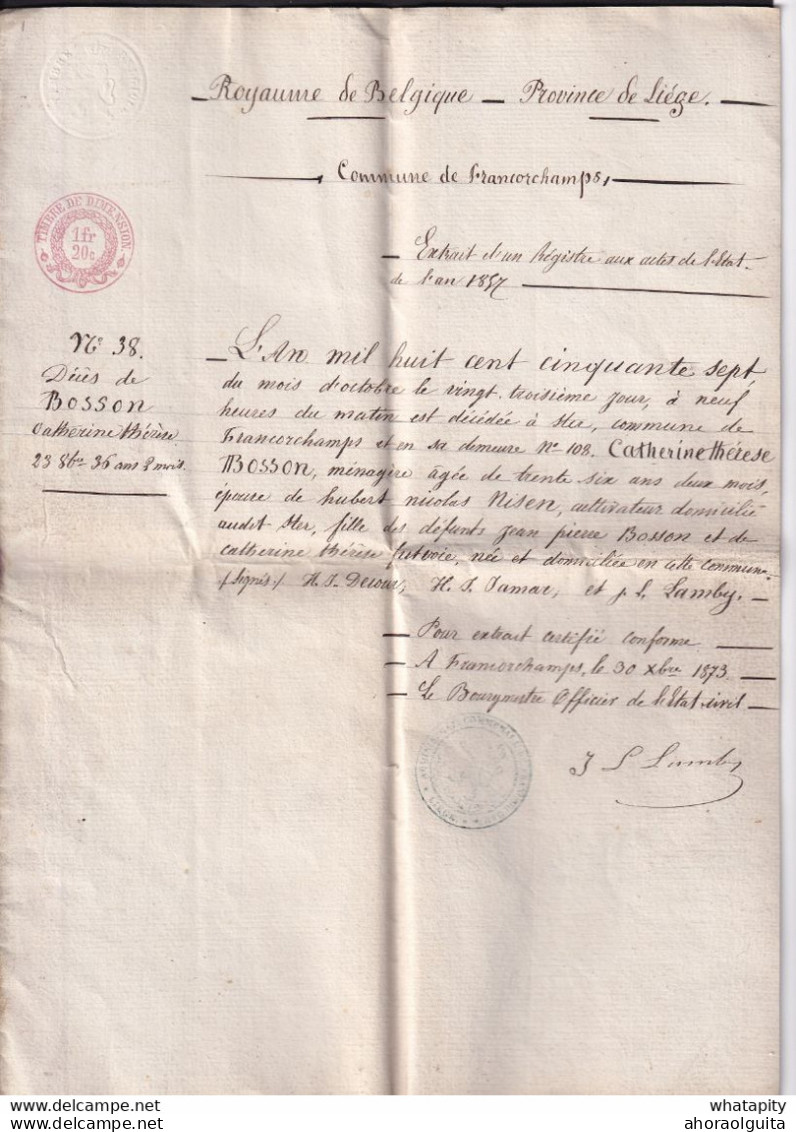 Royaume de Belgique — Province de Liége.
Commune de Francorchamps,
TIMBRE DE DIMENSION.
1fr
20c
Extrait d'un Régistre aux actes de l'Etat-
de l'an 1857
No 38.
Décès de
BOSSON
Catherine thérèse
23 8bre 36 ans 2 mois.
L'An mil huit cent cinquante sept,
du mois d'octobre le vingt-troisième jour, à neuf
heures du matin est décédée à Ster, commune de
Francorchamps et en sa demeure No 108. Catherine thérèse
BOSSON, ménagère agée de trente six ans deux mois,
épouse de hubert nicolas Nisen, cultivateur domicilié
audit Ster, fille des défunts Jean pierre Bosson et de
catherine thérèse, née et domiciliée en cette commune.
/Signés:/ H. J. Decour, H. J. Jamar, et J. L. Lamby.
Pour extrait certifié conforme
A Francorchamps, le 30 xbre 1873.
Le Bourgmestre Officier de l'Etat-civil
J L Lamby
whatapity
ahoraolguita